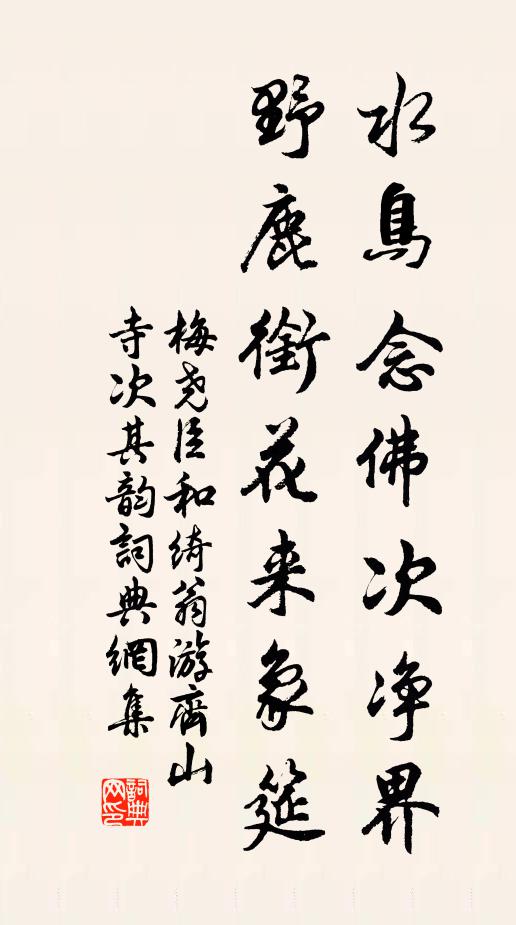 水鳥念佛次净界
野鹿銜花来象筵
梅尧臣和绮翁游齊山
寺次其韵詞典網集
詞典
网印